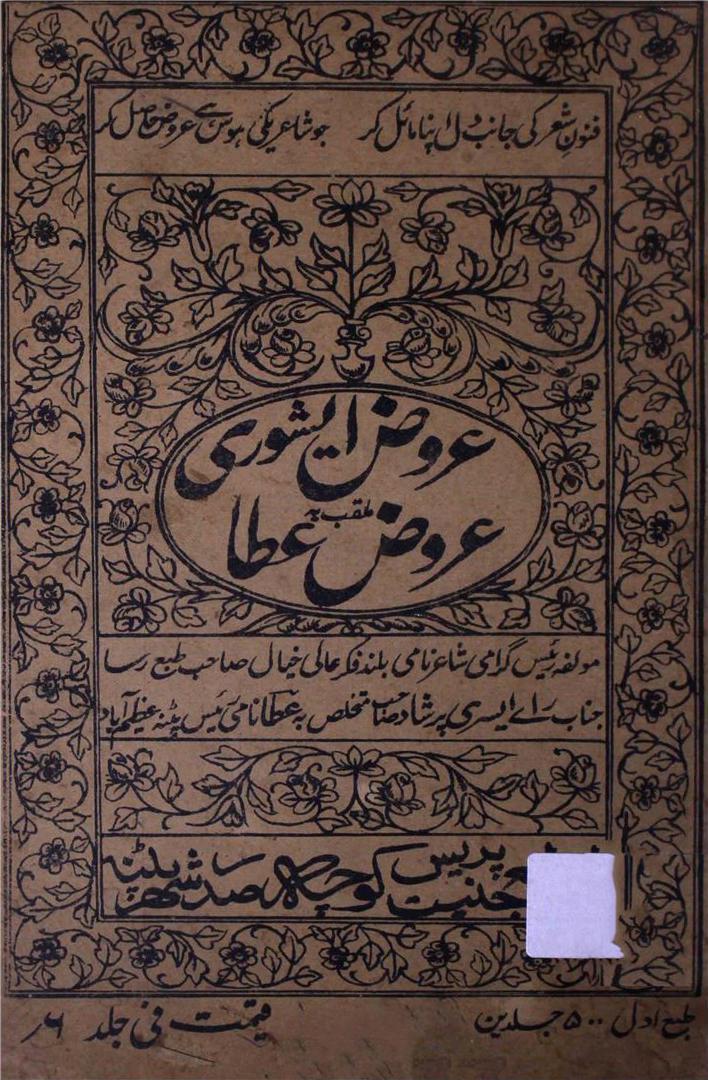 فنونِ شعر کی جانب دل اپنا مائل کر جو شاعری کی ہوس ہے عروض حاصل کر
عروض ایشوری
ملقب بہ
عروض عطا
مولفہ رئیس گرامی شاعر نامی بلند فکر عالی خیال صاحب طبع رسا
جناب رائے ایسری پرشاد صاحب متخلص بہ عطا نامی رئیس پٹنہ عظیم آباد
پریس
کوچہ صدر شہر پٹنہ
طبع اول ۵۰۰ جلدین قیمت فی جلد ۶؍